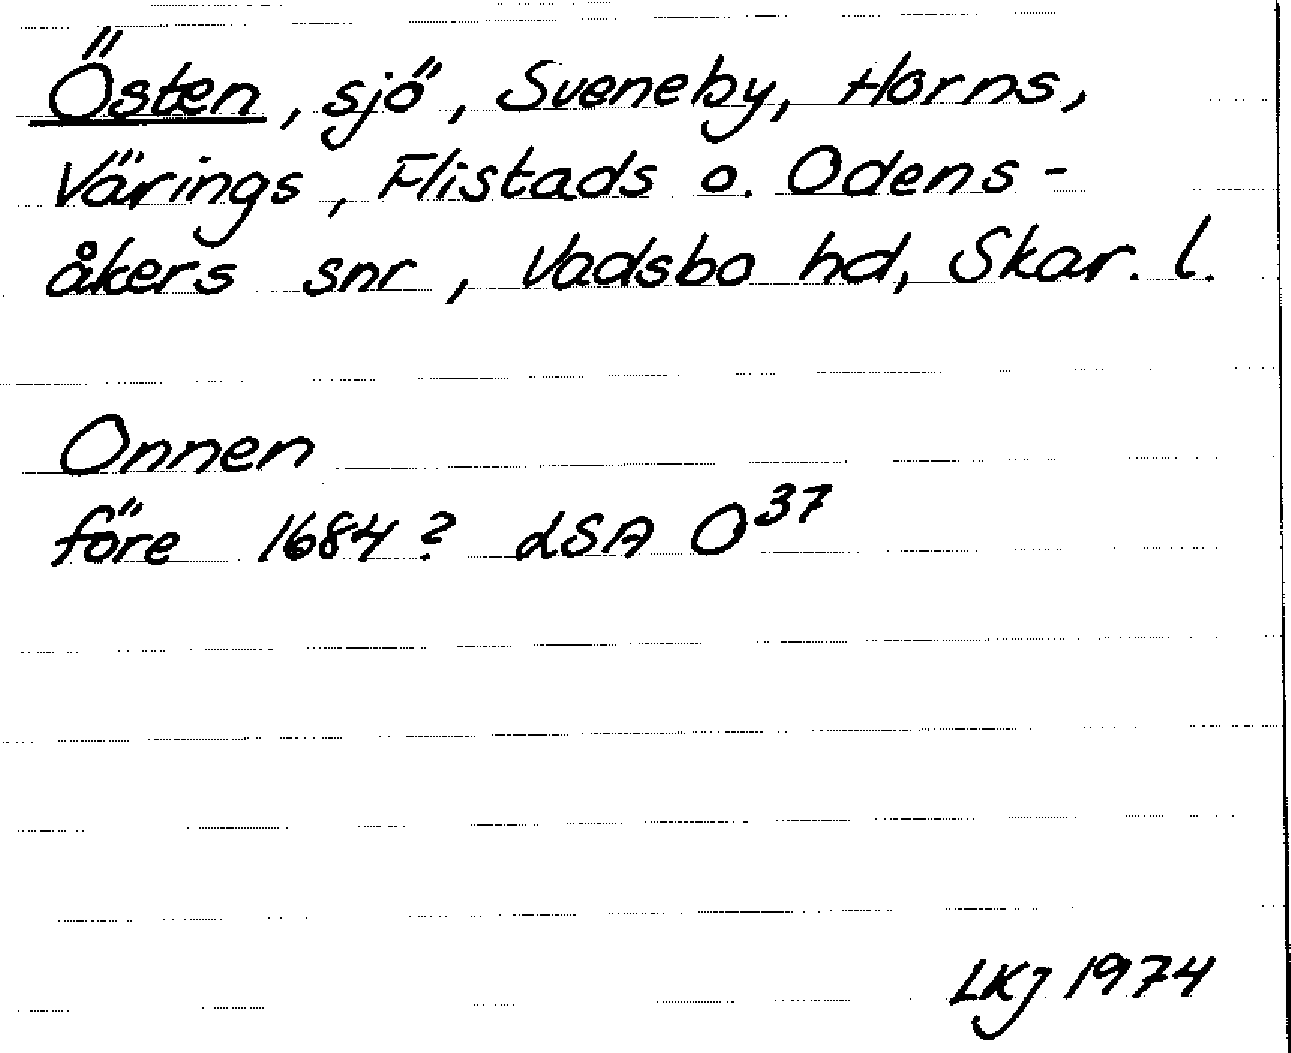 Östen, sjö, Sveneby, Horns,
Värings, Flistads o. Odens-
åkers snr, Vadsbo hd, Skar. l.
Onnen
före 1684? LSA O37
LKJ 1974